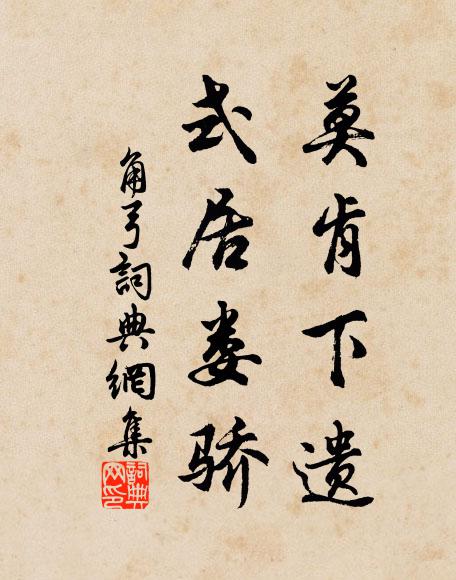 莫肯下遗
式居娄骄
角弓詞典網集
詞典网印